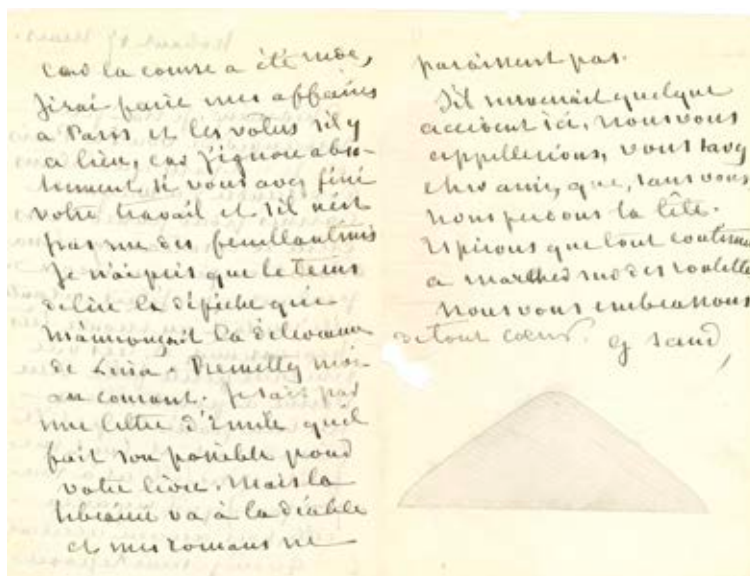 car la course a été rude,
J'irai faire mes affaires
à Paris et les votres s'il y
a lieu, car j'ignore abso-
lument si vous avez fini
votre travail et s'il n'est
pas un des feuilletonnés
Je n'ai pris que le tems
de lire la dépêche qui
m'annonçait la délivrance
de Lina. Remettez moi
au courant. Je sais par
une lettre d'Emile qu'il
fait son possible pour
votre livre. Mais la
librairie va à la diable
et mes romans ne
paraissent pas.
S'il survenait quelque
accident ici, nous vous
appellerions, vous savez
cher ami, que, sans vous
nous perdons la tête.
Espérons que tout continuera
à marcher sur des roulettes
Nous vous embrassons
de tout cœur. G Sand